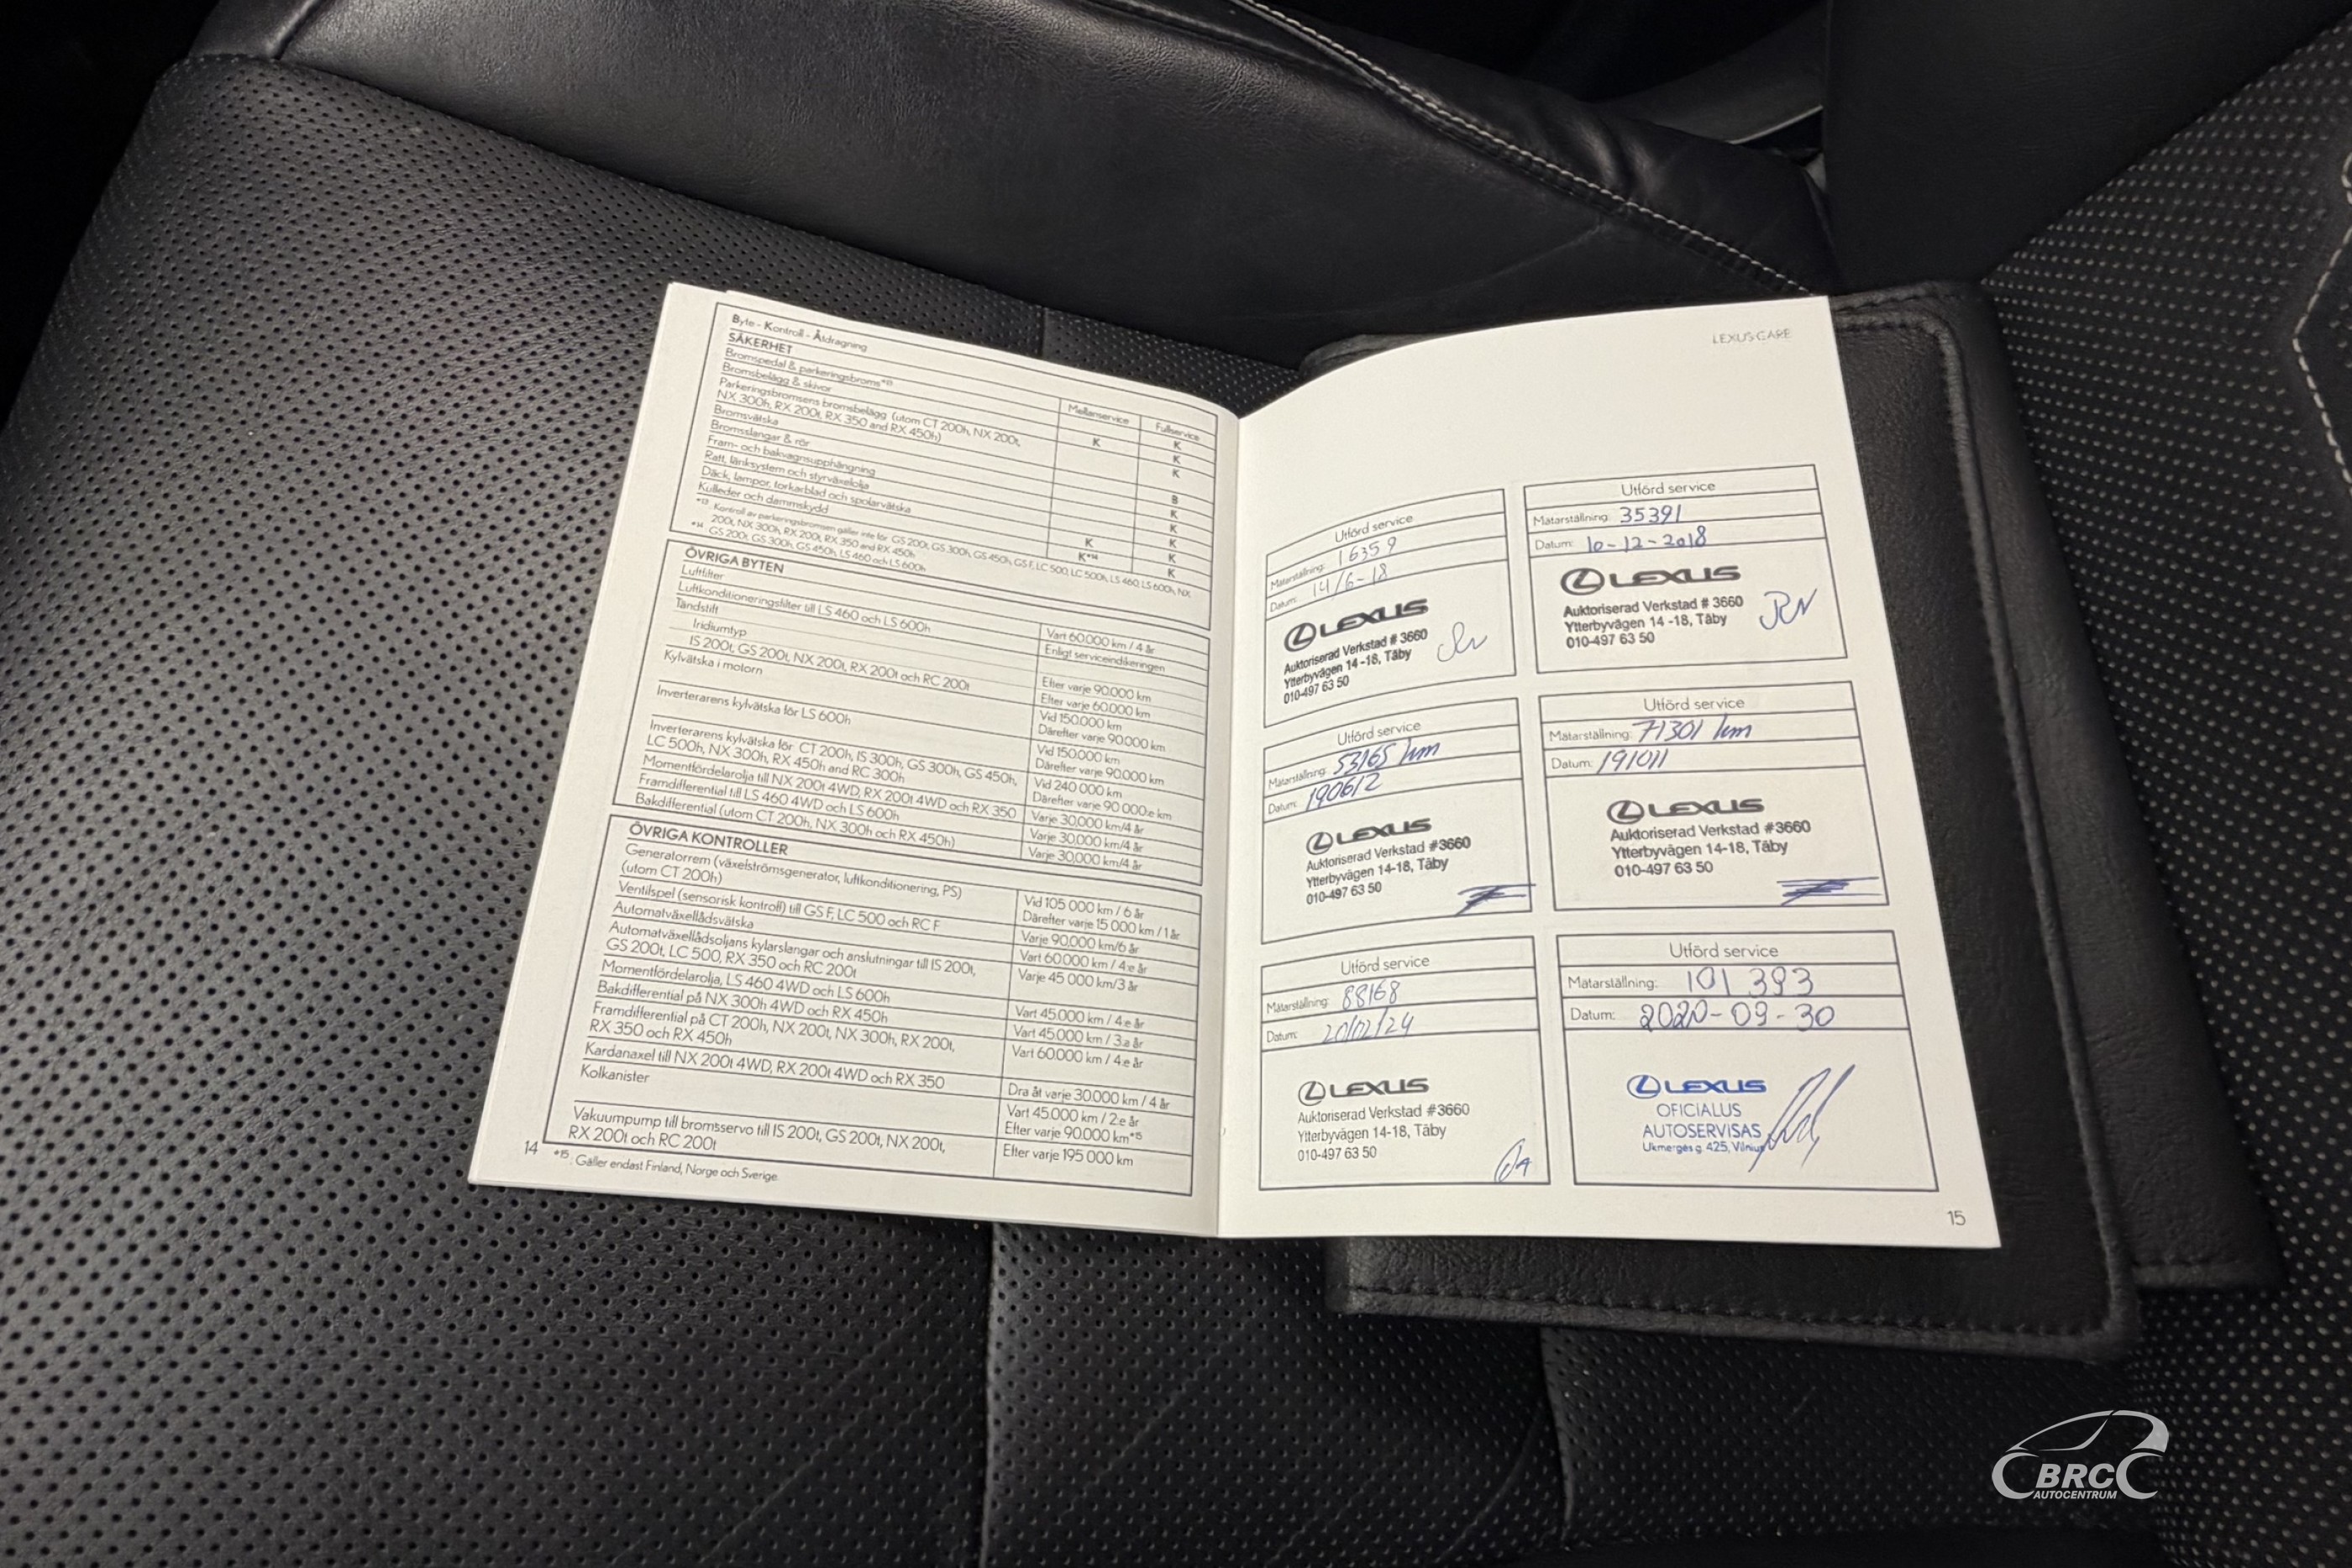 Byte - Kontroll - Åtdragning
SÄKERHET
Mellanservice
Fullservice
Bromspedal & parkeringsbroms*13
K
K
Bromsbelägg & skivor
K
Parkeringsbromsens bromsbelägg (utom CT 200h, NX 200t,
NX 300h, RX 200t, RX 350 and RX 450h)
K
Bromsvätska
B
Bromsslangar & rör
K
Fram- och bakvagnsupphängning
K
Ratt, länksystem och styrväxelolja
K
Däck, lampor, torkarblad och spolarvätska
K
K
Kulleder och dammskydd
K*14
K
*13. Kontroll av parkeringsbromsen gäller inte för GS 200t, GS 300h, GS 450h, GS F, LC 500, LC 500h, LS 460, LS 600h, NX
200t, NX 300h, RX 200t, RX 350 and RX 450h
*14 GS 200t, GS 300h, GS 450h, LS 460 och LS 600h
ÖVRIGA BYTEN
Luftfilter
Vart 60.000 km / 4 år
Luftkonditioneringsfilter till LS 460 och LS 600h
Enligt serviceindikeringen
Tändstift
Iridiumtyp
Efter varje 90.000 km
IS 200t, GS 200t, NX 200t, RX 200t och RC 200t
Efter varje 60.000 km
Kylvätska i motorn
Vid 150.000 km
Därefter varje 90.000 km
Inverterarens kylvätska för LS 600h
Vid 150.000 km
Därefter varje 90.000 km
Inverterarens kylvätska för CT 200h, IS 300h, GS 300h, GS 450h,
LC 500h, NX 300h, RX 450h and RC 300h
Vid 240 000 km
Därefter varje 90 000:e km
Momentfördelarolja till NX 200t 4WD, RX 200t 4WD och RX 350
Varje 30.000 km/4 år
Framdifferential till LS 460 4WD och LS 600h
Varje 30.000 km/4 år
Bakdifferential (utom CT 200h, NX 300h och RX 450h)
Varje 30.000 km/4 år
ÖVRIGA KONTROLLER
Generatorrem (växelströmsgenerator, luftkonditionering, PS)
(utom CT 200h)
Vid 105 000 km / 6 år
Därefter varje 15 000 km / 1 år
Ventilspel (sensorisk kontroll) till GS F, LC 500 och RC F
Varje 90.000 km/6 år
Automatväxellådsvätska
Vart 60.000 km / 4:e år
Automatväxellådsoljans kylarslangar och anslutningar till IS 200t,
GS 200t, LC 500, RX 350 och RC 200t
Varje 45 000 km/3 år
Momentfördelarolja, LS 460 4WD och LS 600h
Vart 45.000 km / 4:e år
Bakdifferential på NX 300h 4WD och RX 450h
Vart 45.000 km / 3:a år
Framdifferential på CT 200h, NX 200t, NX 300h, RX 200t,
RX 350 och RX 450h
Vart 60.000 km / 4:e år
Kardanaxel till NX 200t 4WD, RX 200t 4WD och RX 350
Dra åt varje 30.000 km / 4 år
Kolkanister
Vart 45.000 km / 2:e år
Efter varje 90.000 km*15
Vakuumpump till bromsservo till IS 200t, GS 200t, NX 200t,
RX 200t och RC 200t
Efter varje 195 000 km
14
*15. Gäller endast Finland, Norge och Sverige.
LEXUS CARE
Utförd service
Mätarställning: 16359
Datum: 14/6-18
LEXUS
Auktoriserad Verkstad # 3660
Ytterbyvägen 14 -18, Täby
010-497 63 50
Utförd service
Mätarställning: 35391
Datum: 10-12-2018
LEXUS
Auktoriserad Verkstad # 3660
Ytterbyvägen 14 -18, Täby
010-497 63 50
Utförd service
Mätarställning: 53165 km
Datum: 190612
LEXUS
Auktoriserad Verkstad #3660
Ytterbyvägen 14-18, Täby
010-497 63 50
Utförd service
Mätarställning: 71301 km
Datum: 191011
LEXUS
Auktoriserad Verkstad #3660
Ytterbyvägen 14-18, Täby
010-497 63 50
Utförd service
Mätarställning: 88168
Datum: 20/02/24
LEXUS
Auktoriserad Verkstad #3660
Ytterbyvägen 14-18, Täby
010-497 63 50
Utförd service
Mätarställning: 101 393
Datum: 2020-09-30
LEXUS
OFICIALUS
AUTOSERVISAS
Ukmergės g. 425, Vilnius
15
BRC
AUTOCENTRUM